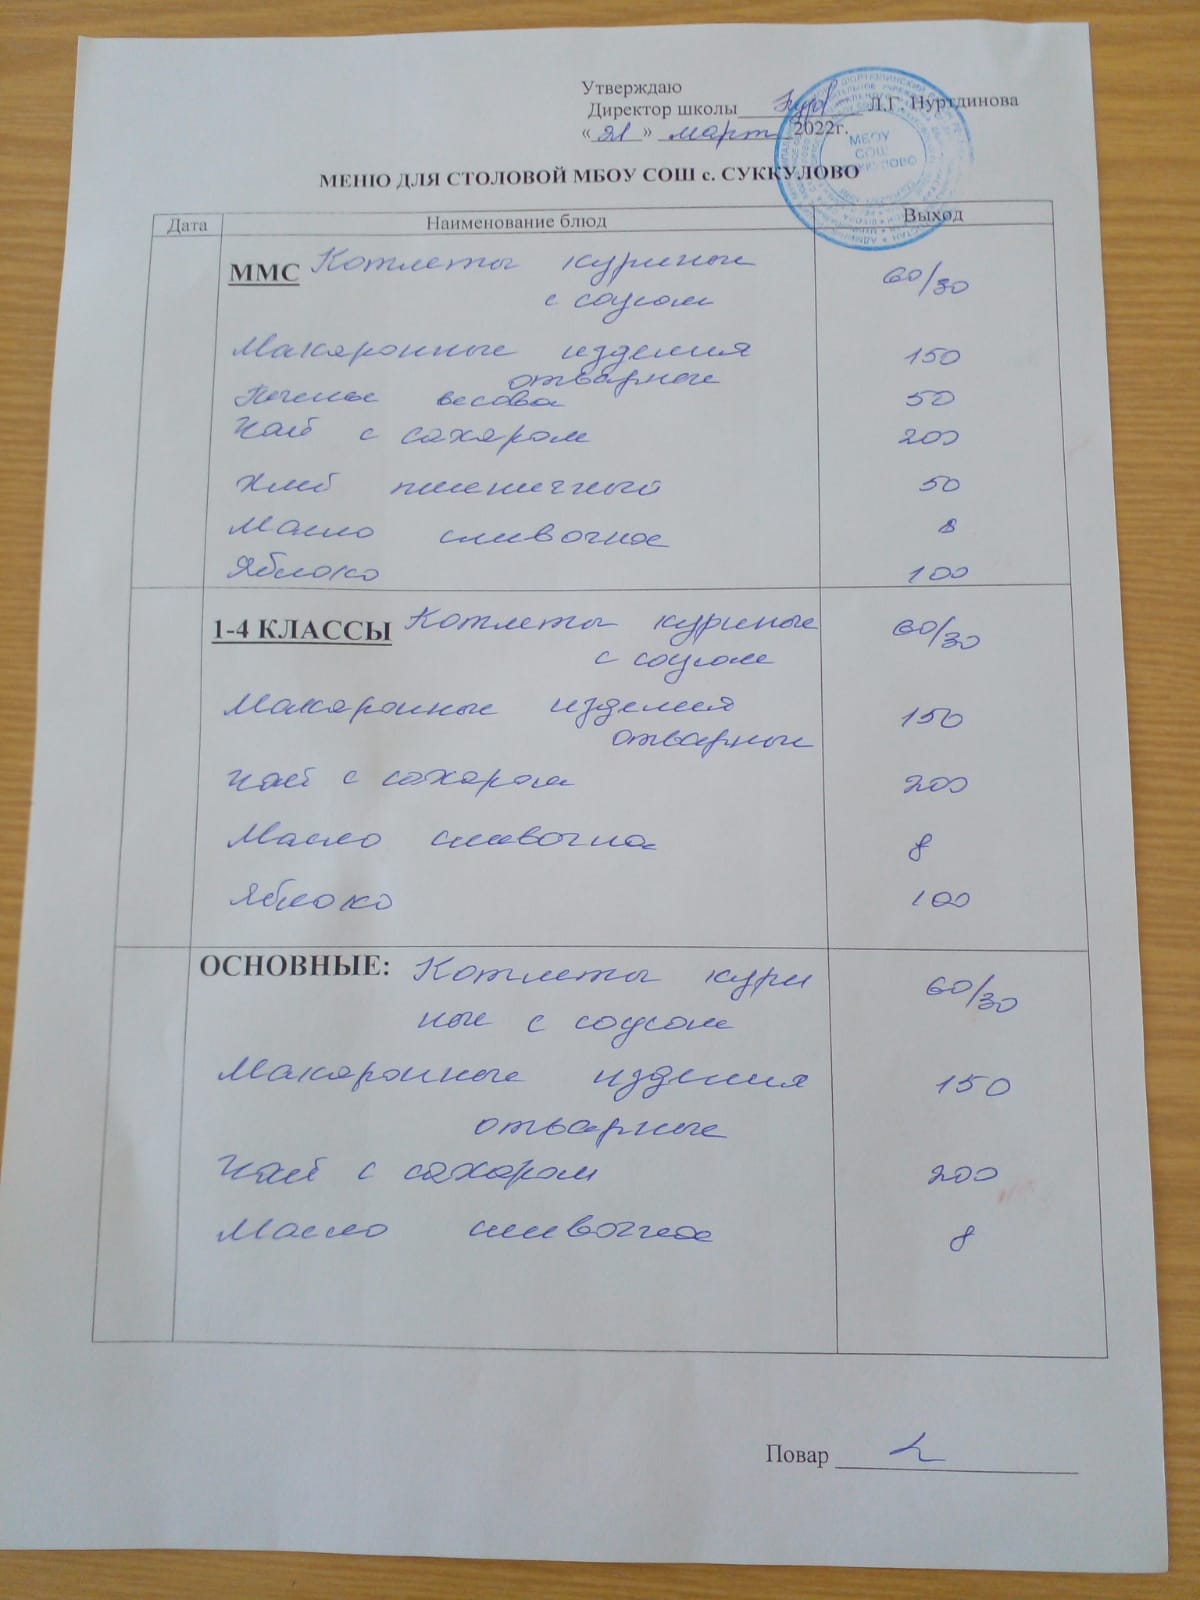 Утверждаю
Директор школы Л.Г. Нуртдинова
«21» март 2022г.
МБОУ
СОШ
СУККУЛОВО
МЕНЮ ДЛЯ СТОЛОВОЙ МБОУ СОШ с. СУККУЛОВО
Дата Наименование блюд Выход
ММС Котлеты куриные 60/30
с соусом
Макаронные изделия 150
отварные
Печенье весовое 50
Чай с сахаром 200
Хлеб пшеничный 50
Масло сливочное 8
Яблоко 100
1-4 КЛАССЫ Котлеты куриные 60/30
с соусом
Макаронные изделия 150
отварные
Чай с сахаром 200
Масло сливочное 8
Яблоко 100
ОСНОВНЫЕ: Котлеты кури 60/30
ные с соусом
Макаронные изделия 150
отварные
Чай с сахаром 200
Масло сливочное 8
Повар